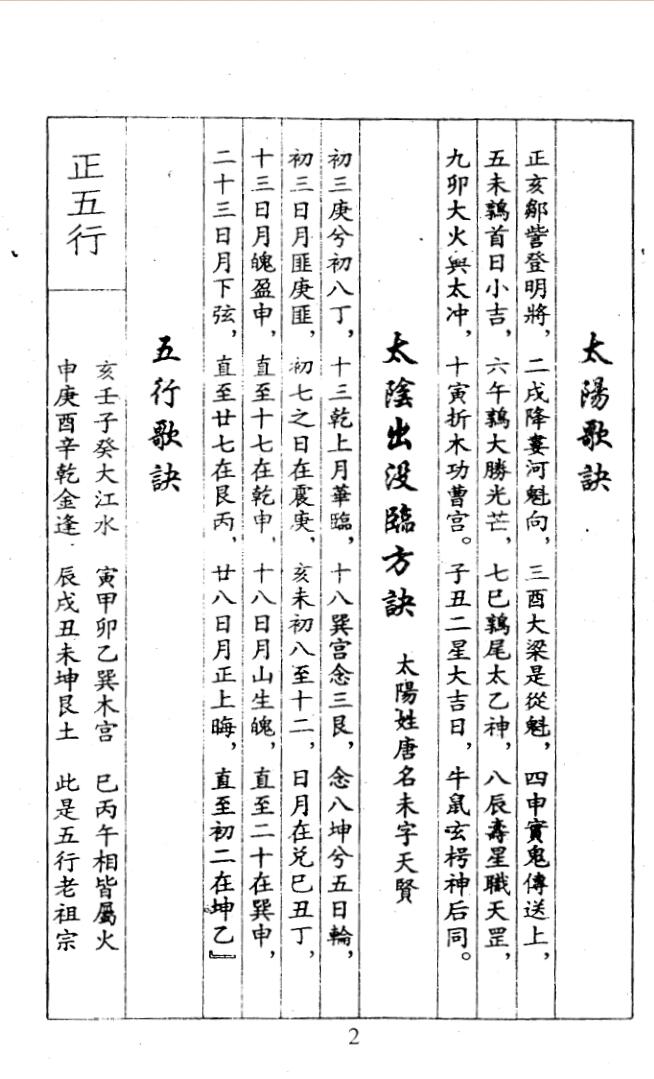 太陽歌訣
正亥鄒訾登明將，二戌降婁河魁向，三酉大梁是從魁，四申實鬼傳送上，
五未鶉首日小吉，六午鶉大勝光芒，七巳鶉尾太乙神，八辰壽星職天罡，
九卯大火與太冲，十寅折木功曹宫。子丑二星大吉日，牛鼠玄枵神后同。
太陰出没臨方訣 太陽姓唐名未字天賢
初三庚兮初八丁，十三乾上月華臨，十八巽宫念三艮，念八坤兮五日輪，
初三日月匪庚匪，初七之日在震庚，亥未初八至十二，日月在兑巳丑丁，
十三日月魄盈申，直至十七在乾申，十八日月山生魄，直至二十在巽申，
二十三日月下弦，直至廿七在艮丙，廿八日月正上晦，直至初二在坤乙。』
五行歌訣
正五行
亥壬子癸大江水 寅甲卯乙巽木宫 巳丙午相皆屬火
申庚酉辛乾金逢 辰戌丑未坤艮土 此是五行老祖宗
2